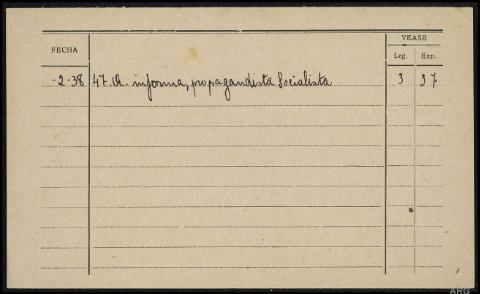 FECHA
VEASE
Leg. Exp.
-2-38 47.A. informa, propagandista Socialista 3 97
ARG